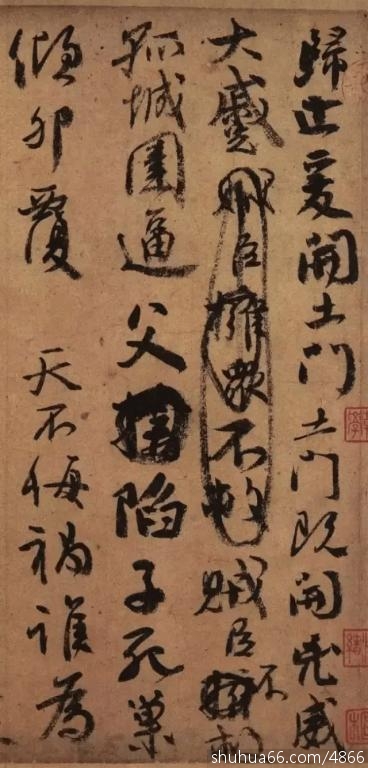 歸止爰開土門土門既開凶威
大蹙賊臣擁眾不救賊臣不擁救
孤城圍逼父陷子死巢
傾卵覆 天不悔禍誰為
shuhua66.com/4866